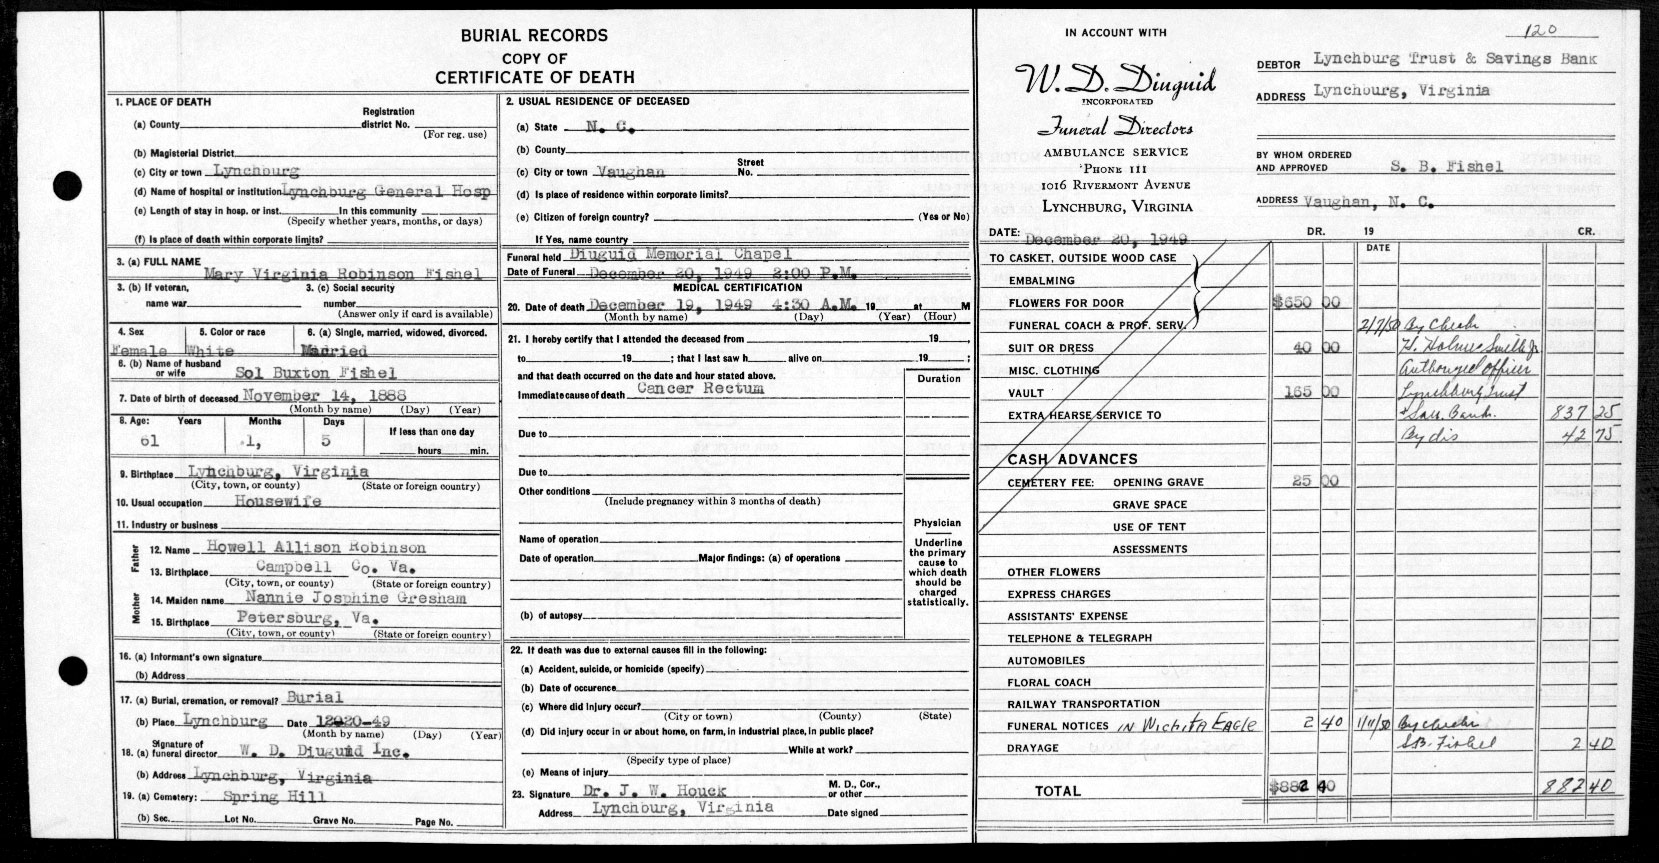 BURIAL RECORDS
COPY OF
CERTIFICATE OF DEATH
1. PLACE OF DEATH
(a) County
Registration district No.
(For reg. use)
(b) Magisterial District
(c) City or town Lynchburg
(d) Name of hospital or institution Lynchburg General Hosp
(e) Length of stay in hosp. or inst. In this community
(Specify whether years, months, or days)
(f) Is place of death within corporate limits?
3. (a) FULL NAME
Mary Virginia Robinson Fishel
3. (b) If veteran, name war
3. (c) Social security number
(Answer only if card is available)
4. Sex 5. Color or race 6. (a) Single, married, widowed, divorced.
Female White Married
6. (b) Name of husband or wife Sol Buxton Fishel
7. Date of birth of deceased November 14, 1888
(Month by name) (Day) (Year)
8. Age: Years Months Days If less than one day
61 1, 5 hours min.
9. Birthplace Lynchburg, Virginia
(City, town, or county) (State or foreign country)
10. Usual occupation Housewife
11. Industry or business
Father
12. Name Howell Allison Robinson
13. Birthplace Campbell Co. Va.
(City, town, or county) (State or foreign country)
Mother
14. Maiden name Nannie Josphine Gresham
15. Birthplace Petersburg, Va.
(City, town, or county) (State or foreign country)
16. (a) Informant's own signature
(b) Address
17. (a) Burial, cremation, or removal? Burial
(b) Place Lynchburg Date 12-20-49
(Month by name) (Day) (Year)
18. (a) Signature of funeral director W. D. Diuguid Inc.
(b) Address Lynchburg, Virginia
19. (a) Cemetery: Spring Hill
(b) Sec. Lot No. Grave No. Page No.
2. USUAL RESIDENCE OF DECEASED
(a) State N. C.
(b) County
(c) City or town Vaughan Street No.
(d) Is place of residence within corporate limits?
(e) Citizen of foreign country? (Yes or No)
If Yes, name country
Funeral held Diuguid Memorial Chapel
Date of Funeral December 20, 1949 2:00 P.M.
MEDICAL CERTIFICATION
20. Date of death December 19, 1949 4:30 A.M. 19 at M
(Month by name) (Day) (Year) (Hour)
21. I hereby certify that I attended the deceased from 19 ,
to 19 ; that I last saw h alive on 19 ;
and that death occurred on the date and hour stated above.
Duration
Immediate cause of death Cancer Rectum
Due to
Due to
Other conditions
(Include pregnancy within 3 months of death)
Name of operation
Date of operation Major findings: (a) of operations
(b) of autopsy
Physician
Underline
the primary
cause to
which death
should be
charged
statistically.
22. If death was due to external causes fill in the following:
(a) Accident, suicide, or homicide (specify)
(b) Date of occurence
(c) Where did injury occur?
(City or town) (County) (State)
(d) Did injury occur in or about home, on farm, in industrial place, in public place?
While at work?
(Specify type of place)
(e) Means of injury
23. Signature Dr. J. W. Houck M. D., Cor., or other
Address Lynchburg, Virginia Date signed
IN ACCOUNT WITH
W. D. Diuguid
INCORPORATED
Funeral Directors
AMBULANCE SERVICE
PHONE 111
1016 RIVERMONT AVENUE
LYNCHBURG, VIRGINIA
120
DEBTOR Lynchburg Trust & Savings Bank
ADDRESS Lynchburg, Virginia
BY WHOM ORDERED AND APPROVED S. B. Fishel
ADDRESS Vaughan, N. C.
DATE: December 20, 1949 DR. 19 CR.
DATE
TO CASKET, OUTSIDE WOOD CASE
EMBALMING
FLOWERS FOR DOOR $650 00
FUNERAL COACH & PROF. SERV. 2/7/50 By Check
SUIT OR DRESS 40 00 H. Holmes Smith Jr
MISC. CLOTHING Authorized Officer
VAULT 165 00 Lynchburg Trust
EXTRA HEARSE SERVICE TO & Sav. Bank. 837 25
By dis 42 75
CASH ADVANCES
CEMETERY FEE: OPENING GRAVE 25 00
GRAVE SPACE
USE OF TENT
ASSESSMENTS
OTHER FLOWERS
EXPRESS CHARGES
ASSISTANTS' EXPENSE
TELEPHONE & TELEGRAPH
AUTOMOBILES
FLORAL COACH
RAILWAY TRANSPORTATION
FUNERAL NOTICES IN WICHITA EAGLE 2 40 1/11/50 By check
DRAYAGE S.B. Fishel 2 40
TOTAL $882 40 882 40